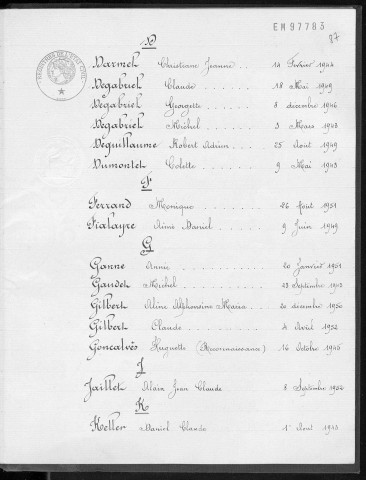 EM97783
87
D
Darmet Christiane Jeanne . . 14 Février 1944
Dégabriel Claude . . . . . 18 Mai 1949
Dégabriel Georgette . . . . 8 décembre 1946
Dégabriel Michel . . . . . 3 Mars 1943
Déguillaume Robert Adrien . . . 25 Août 1949
Dumontet Colette . . . . . 9 Mai 1943
F
Ferrand Monique . . . . . 26 Août 1951
Fialayre Aimé Daniel . . . . 9 Juin 1949
G
Ganne Annie . . . . . 20 Janvier 1951
Gaudet Michel . . . . . 23 Septembre 1943
Gilbert Aline Alphonsine Maria . . . 20 décembre 1950
Gilbert Claude . . . . . 4 Avril 1952
Goncalvès Huguette (Reconnaissance) . . 16 Octobre 1946
J
Jaillet Alain Jean Claude 8 Septembre 1952
K
Keller Daniel Claude 1er Août 1943